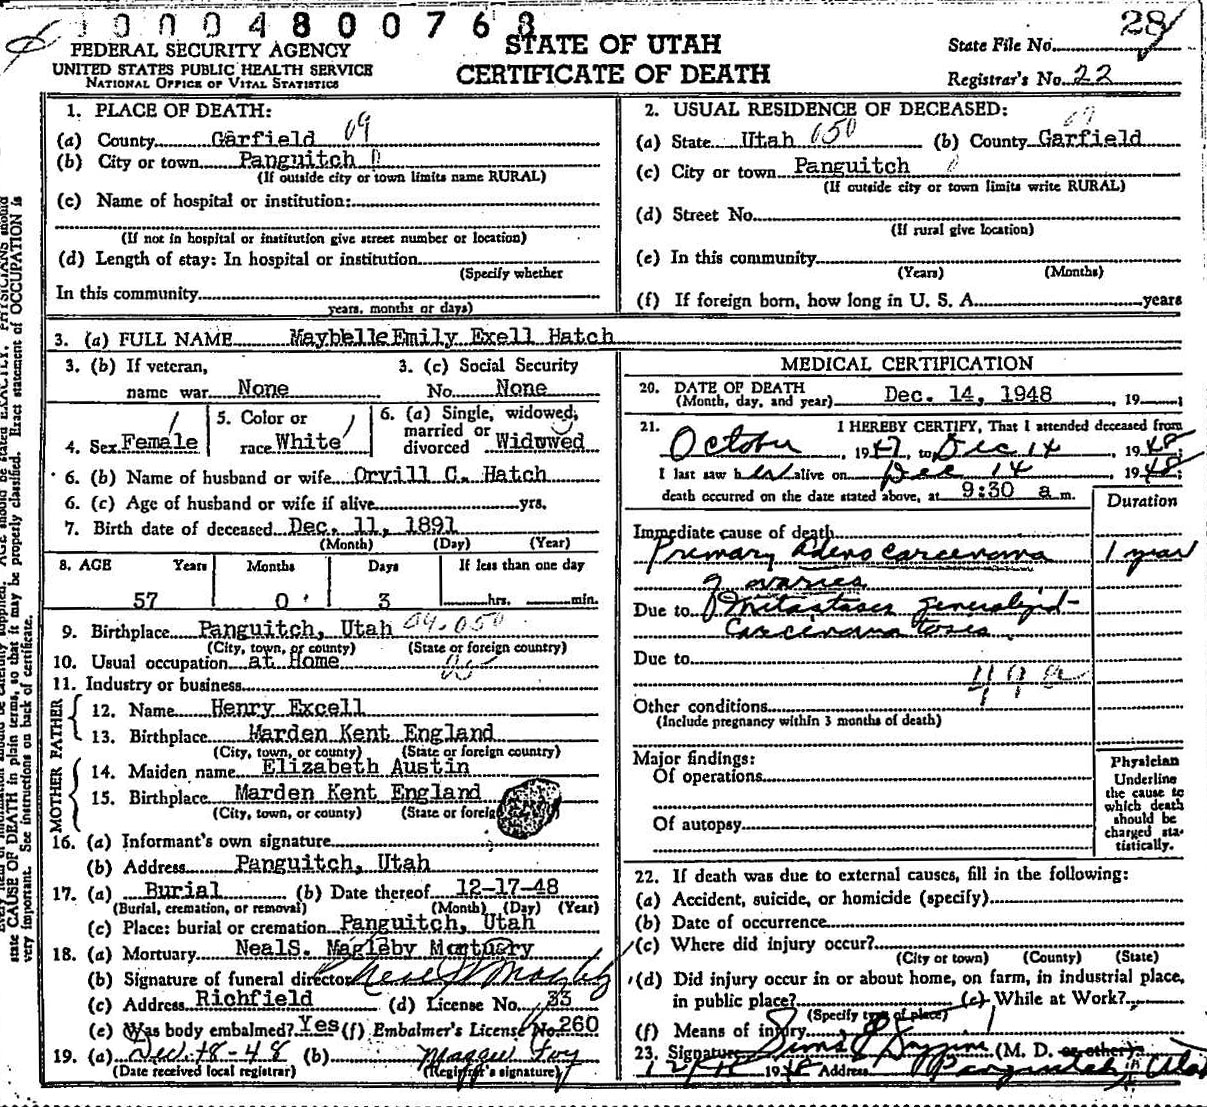 0004800768
28
FEDERAL SECURITY AGENCY
UNITED STATES PUBLIC HEALTH SERVICE
NATIONAL OFFICE OF VITAL STATISTICS
STATE OF UTAH
CERTIFICATE OF DEATH
State File No.
Registrar's No. 22
1. PLACE OF DEATH:
(a) County Garfield 09
(b) City or town Panguitch 0
(If outside city or town limits name RURAL)
(c) Name of hospital or institution:
(If not in hospital or institution give street number or location)
(d) Length of stay: In hospital or institution
(Specify whether
In this community
years, months or days)
2. USUAL RESIDENCE OF DECEASED:
(a) State Utah 050 (b) County Garfield 09
(c) City or town Panguitch 0
(If outside city or town limits write RURAL)
(d) Street No.
(If rural give location)
(e) In this community
(Years) (Months)
(f) If foreign born, how long in U. S. A. years
3. (a) FULL NAME Maybelle Emily Exell Hatch
3. (b) If veteran, 3. (c) Social Security
name war None No. None
4. Sex Female 5. Color or race White 6. (a) Single, widowed, married or divorced Widowed
6. (b) Name of husband or wife Orvill C. Hatch
6. (c) Age of husband or wife if alive yrs.
7. Birth date of deceased Dec. 11, 1891
(Month) (Day) (Year)
8. AGE Years Months Days If less than one day
57 0 3 hrs. min.
9. Birthplace Panguitch, Utah 09-050
(City, town, or county) (State or foreign country)
10. Usual occupation at Home
11. Industry or business
FATHER
12. Name Henry Excell
13. Birthplace Marden Kent England
(City, town, or county) (State or foreign country)
MOTHER
14. Maiden name Elizabeth Austin
15. Birthplace Marden Kent England
(City, town, or county) (State or foreig
16. (a) Informant's own signature
(b) Address Panguitch, Utah
17. (a) Burial (b) Date thereof 12-17-48
(Burial, cremation, or removal) (Month) (Day) (Year)
(c) Place: burial or cremation Panguitch, Utah
18. (a) Mortuary NealS. Magleby Mortuary
(b) Signature of funeral director Neal S Magleby
(c) Address Richfield (d) License No. 33
(e) Was body embalmed? Yes (f) Embalmer's License No. 260
19. (a) Dec. 18-48 (b) Maggie Foy
(Date received local registrar) (Registrar's signature)
MEDICAL CERTIFICATION
20. DATE OF DEATH
(Month, day, and year) Dec. 14, 1948, 19
21. I HEREBY CERTIFY, That I attended deceased from
October, 1947, to Dec 14, 1948;
I last saw her alive on Dec 14 1948;
death occurred on the date stated above, at 9:30 a m.
Duration
Immediate cause of death
Primary adeno carcenoma 1 year
of ovaries
Due to Metastases generalized-
Carcinoma tosis
Due to
49a
Other conditions
(Include pregnancy within 3 months of death)
Major findings:
Of operations
Of autopsy
Physician
Underline
the cause to
which death
should be
charged sta-
tistically.
22. If death was due to external causes, fill in the following:
(a) Accident, suicide, or homicide (specify)
(b) Date of occurrence
(c) Where did injury occur?
(City or town) (County) (State)
(d) Did injury occur in or about home, on farm, in industrial place,
in public place? (e) While at Work?
(Specify type of place)
(f) Means of injury
23. Signature Sims E Duggins (M. D. or other)
1948 Address Panguitch, Utah
state CAUSE OF DEATH in plain terms, so that it may be properly classified. Exact statement of OCCUPATION is
very important. See instructions on back of certificate.